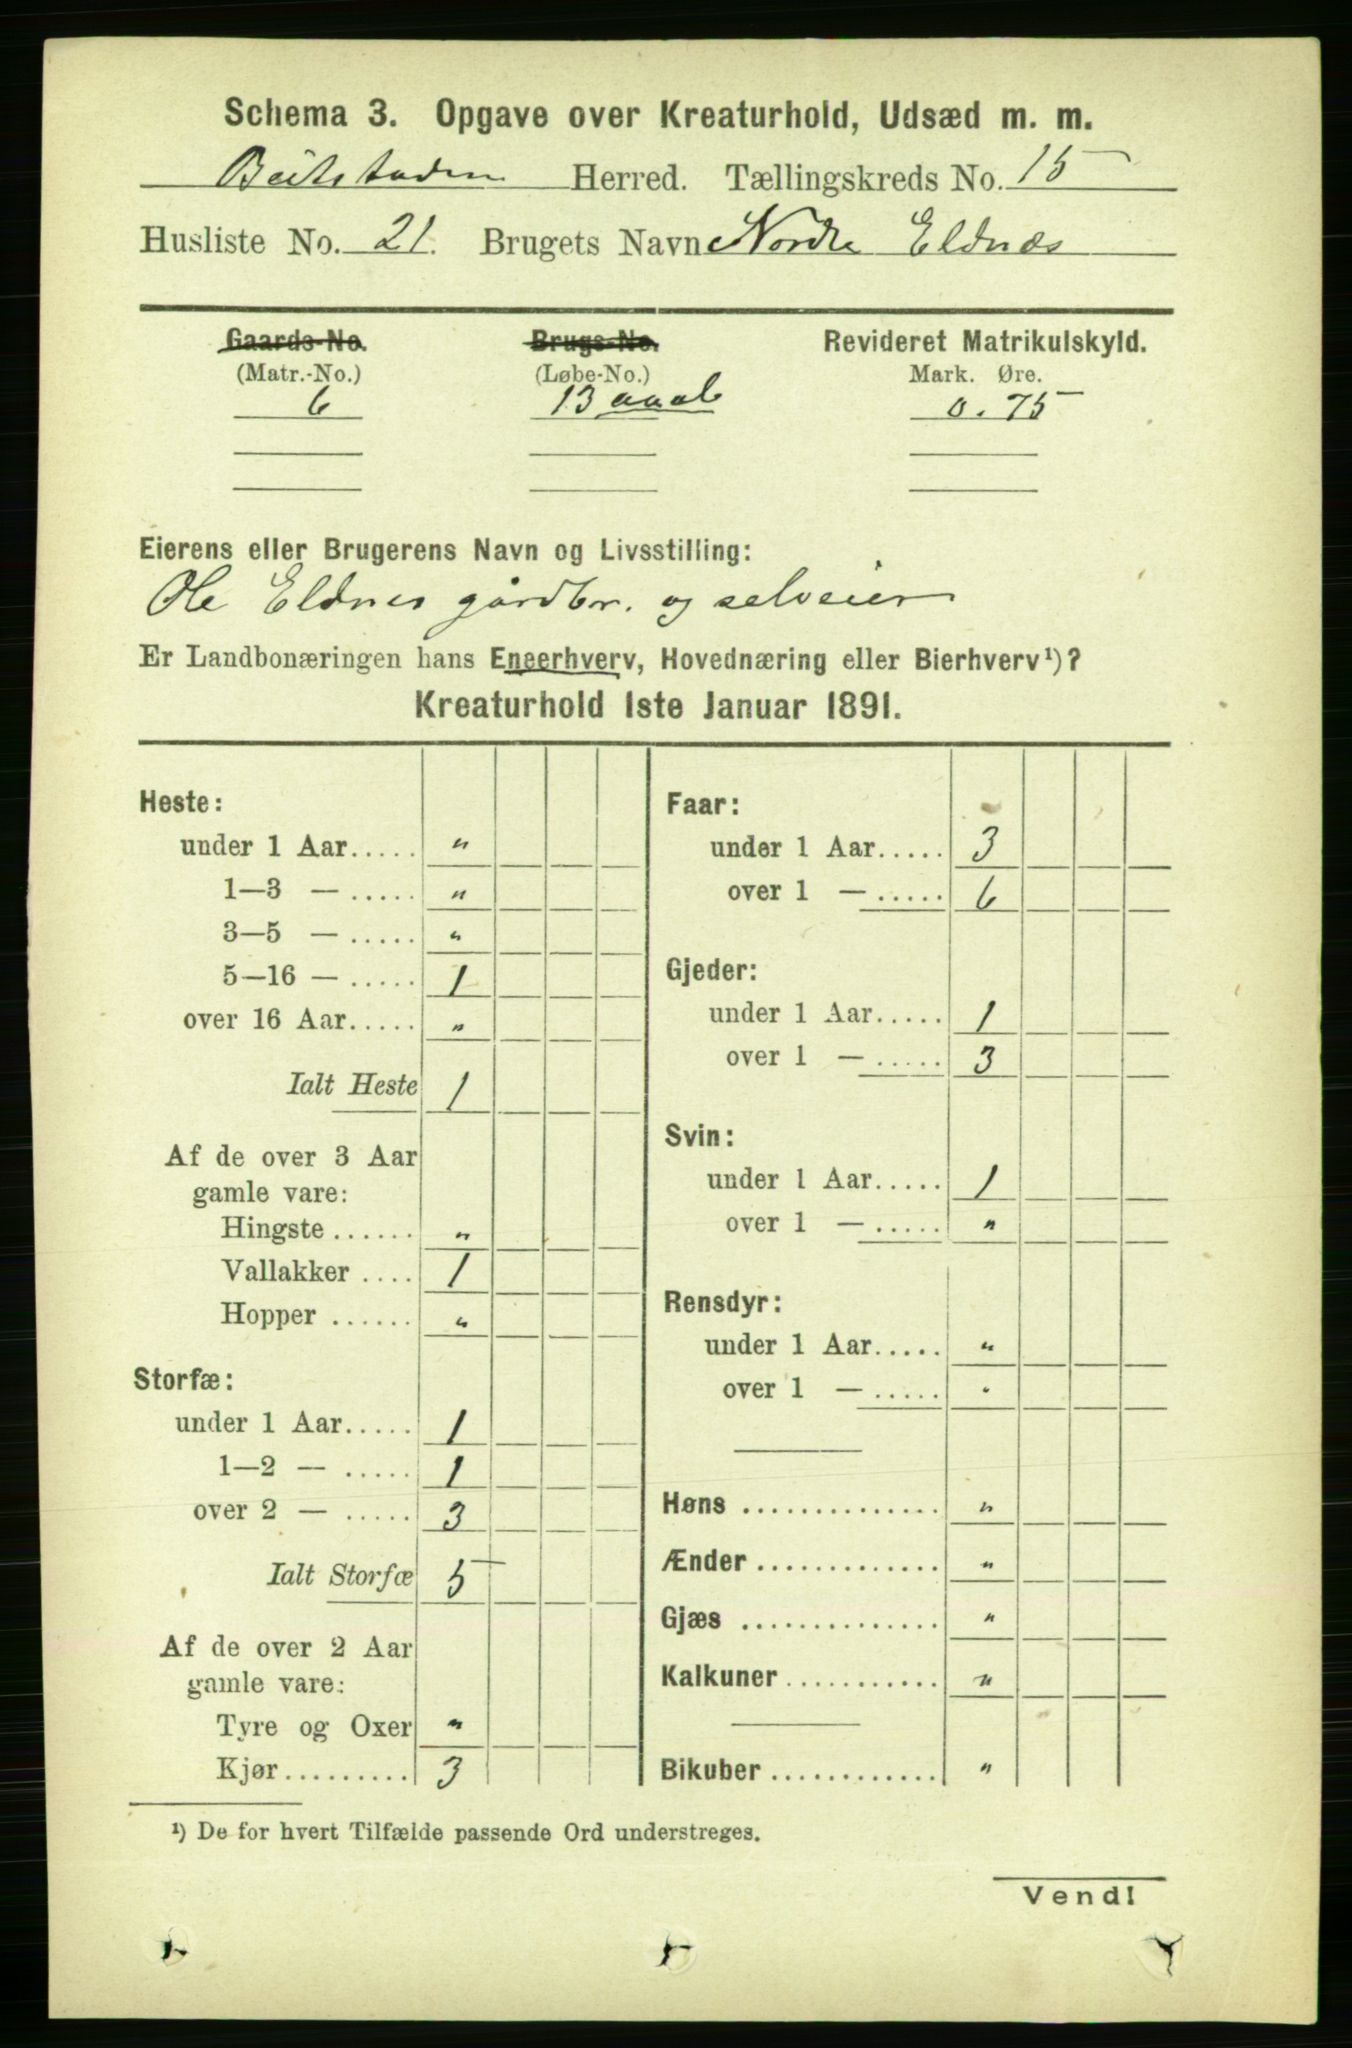 Schema 3. Opgave over Kreaturhold, Udsæd m. m.
Beitstaden Herred. Tællingskreds No. 15
Husliste No. 21. Brugets Navn Nordre Eldnæs
Gaards-No. Brugs-No. Revideret Matrikulskyld.
(Matr.-No.) (Løbe-No.) Mark. Øre.
6 13 0.75
Eierens eller Brugerens Navn og Livsstilling:
Ole Eldnes gårdbr. og selveier
Er Landbonæringen hans Eneerhverv, Hovednæring eller Bierhverv¹)?
Kreaturhold 1ste Januar 1891.
Heste:
under 1 Aar..... "
1—3 — ..... "
3—5 — ..... "
5—16 — ..... 1
over 16 Aar..... "
Ialt Heste 1
Af de over 3 Aar
gamle vare:
Hingste ...... "
Vallakker .... 1
Hopper ...... "
Storfæ:
under 1 Aar..... 1
1—2 — ..... 1
over 2 — ..... 3
Ialt Storfæ 5
Af de over 2 Aar
gamle vare:
Tyre og Oxer "
Kjør......... 3
Faar:
under 1 Aar..... 3
over 1 — ..... 6
Gjeder:
under 1 Aar..... 1
over 1 — ..... 3
Svin:
under 1 Aar..... 1
over 1 — ..... "
Rensdyr:
under 1 Aar..... "
over 1 — ..... "
Høns .............. "
Ænder ............. "
Gjæs .............. "
Kalkuner ........... "
Bikuber ............ "
¹) De for hvert Tilfælde passende Ord understreges.
Vend!